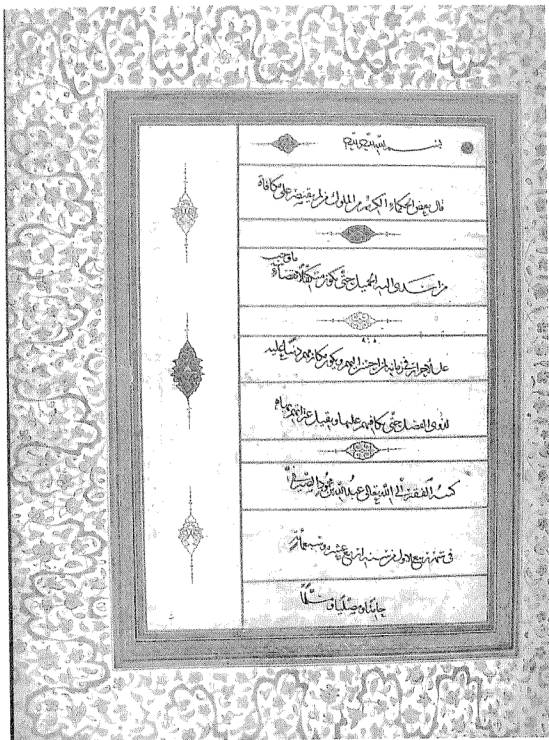 بسم الله الرحمن الرحيم
قال بعض الحكماء الكريم من الملوك من لم يقتصر على مكافاة
من اسدى اليه الجميل حتى يكون متكفلا لقضاء ما وجب
على الاحرار في زمانه من احسن اليهم ويكون مكانهم
لذوى الفضل حتى يكافيهم عليها ويقيل عثراتهم
كتبه الفقير الى الله تعالى عبد الله بن محمود الصيرفى
فى شهر ربيع الاول من سنة اربع عشرين وسبعمائة
حامدا ومصليا ومسلما